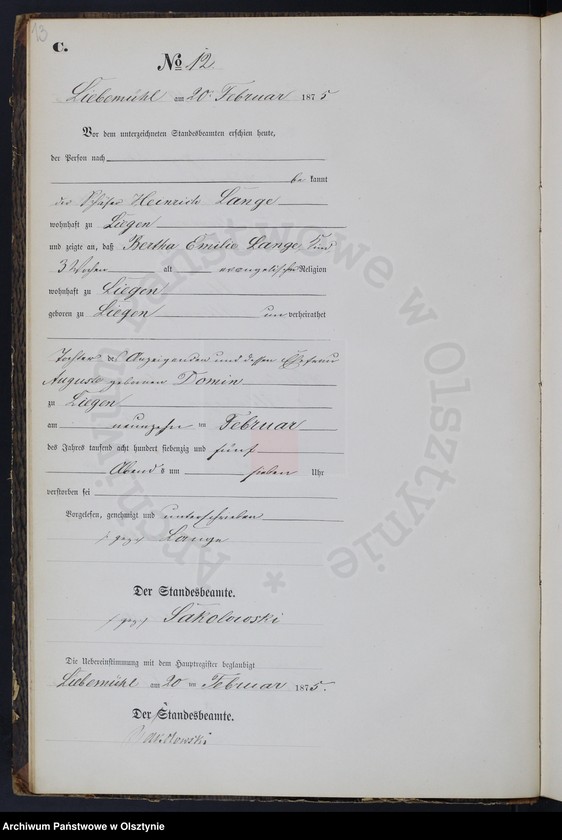 13
C.
No 12.
Liebemühl am 20. Februar 1875
Vor dem unterzeichneten Standesbeamten erschien heute,
der Person nach
be kannt
der Schäfer Heinrich Lange
wohnhaft zu Liegen
und zeigte an, daß Bertha Emilie Lange, Kind
3 Wochen alt evangelischer Religion
wohnhaft zu Liegen
geboren zu Liegen un verheirathet
Tochter des Anzeigenden und dessen Ehefrau
Auguste geborenen Domin
zu Liegen
am neunzehn ten Februar
des Jahres tausend acht hundert siebenzig und fünf
Abends um sieben Uhr
verstorben sei
Vorgelesen, genehmigt und unterschrieben
gez. Lange
Der Standesbeamte.
gez. Sakolowski
Die Uebereinstimmung mit dem Hauptregister beglaubigt
Liebemühl am 20 ten Februar 1875.
Der Standesbeamte.
Sakolowski
Archiwum Państwowe w Olsztynie *
Archiwum Państwowe w Olsztynie